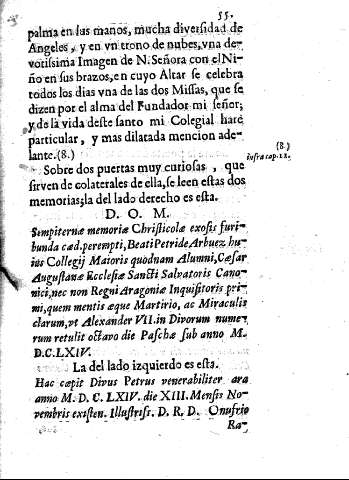 55.
palma en las manos, mucha diversidad de
Angeles, y en vn trono de nubes, vna de-
votissima Imagen de N. Señora con el Ni-
ño en sus brazos, en cuyo Altar se celebra
todos los dias vna de las dos Missas, que se
dizen por el alma del Fundador mi señor;
y de la vida deste santo mi Colegial harè
particular, y mas dilatada mencion ade-
lante.(8.)
(8.)
infra cap. 12.
Sobre dos puertas muy curiosas, que
sirven de colaterales de ella, se leen estas dos
memorias; la del lado derecho es esta.
D. O. M.
Sempiternæ memoriæ Christicolæ exosis furi-
bunda cæd. perempti, Beati Petri de Arbuez hu-
ius Collegij Maioris quodnam Alumni, Cæsar
Augustanæ Ecclesiæ Sancti Salvatoris Cano-
nici, nec non Regni Aragoniæ Inquisitoris pri-
mi, quem mentis æque Martirio, ac Miraculis
clarum, vt Alexander VII. in Divorum nume-
rum retulit octavo die Paschæ sub anno M.
D.C.LXIV.
La del lado izquierdo es esta.
Hac cæpit Divus Petrus venerabiliter ara
anno M. D. C. LXIV. die XIII. Mensis No-
vembris existen. Illustriss. D. R. D. Onufrio
Ra-